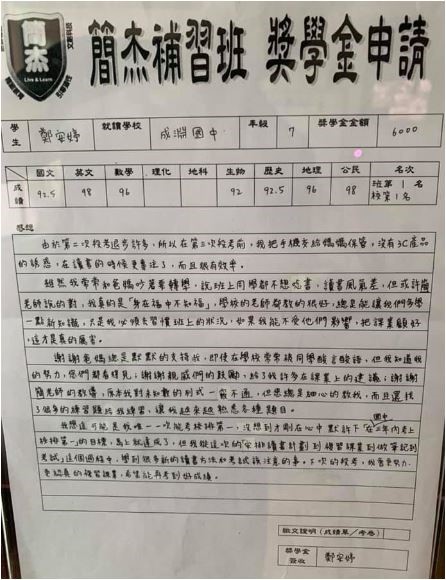 簡杰
Live & Learn
簡杰補習班 獎學金申請
學生 鄭安婷 就讀學校 成淵國中 年級 7 獎學金金額 6000
國文 英文 數學 理化 地科 生物 歷史 地理 公民 名次
成績 92.5 98 96 92 92.5 96 98 班第1名 校第1名
感想
由於第二次段考退步許多,所以在第三次段考前,我把手機交給媽媽保管,沒有3C產品
的誘惑,在讀書的時候更專注了,而且很有效率。
雖然我常常和爸媽吵著要轉學,說班上同學都不想唸書,讀書風氣差,但或許簡
老師說的對,我真的是「身在福中不知福」,學校的老師都教的很好,總是能讓我們多學
一點新知識,只是我必須去習慣班上的狀況,如果我能不受他們影響,把課業顧好,
這才是真的厲害。
謝謝爸媽總是默默的支持我,即使在學校常常被同學酸言酸語,但我知道我
的努力,您們都看得見;謝謝親戚們的鼓勵,給了我許多在課業上的建議;謝謝
簡老師的教導,原本我對未知數的列式一竅不通,但您總是細心的教我,而且還找
了很多的練習題給我練習,讓我越來越熟悉各種題目。
我想這可能是我唯一一次能考校排第一,沒想到才剛在心中默許下「在國中三年內考上
校排第一」的目標,馬上就達成了,但我從這次的「安排讀書計劃到複習課業到做筆記到
考試」這個過程中,學到很多新的讀書方法和考試該注意的事。下次的段考,我會更努力、
更認真的複習課業,希望能再考到好成績。
繳交證明(成績單/考卷)
獎學金簽收 鄭安婷